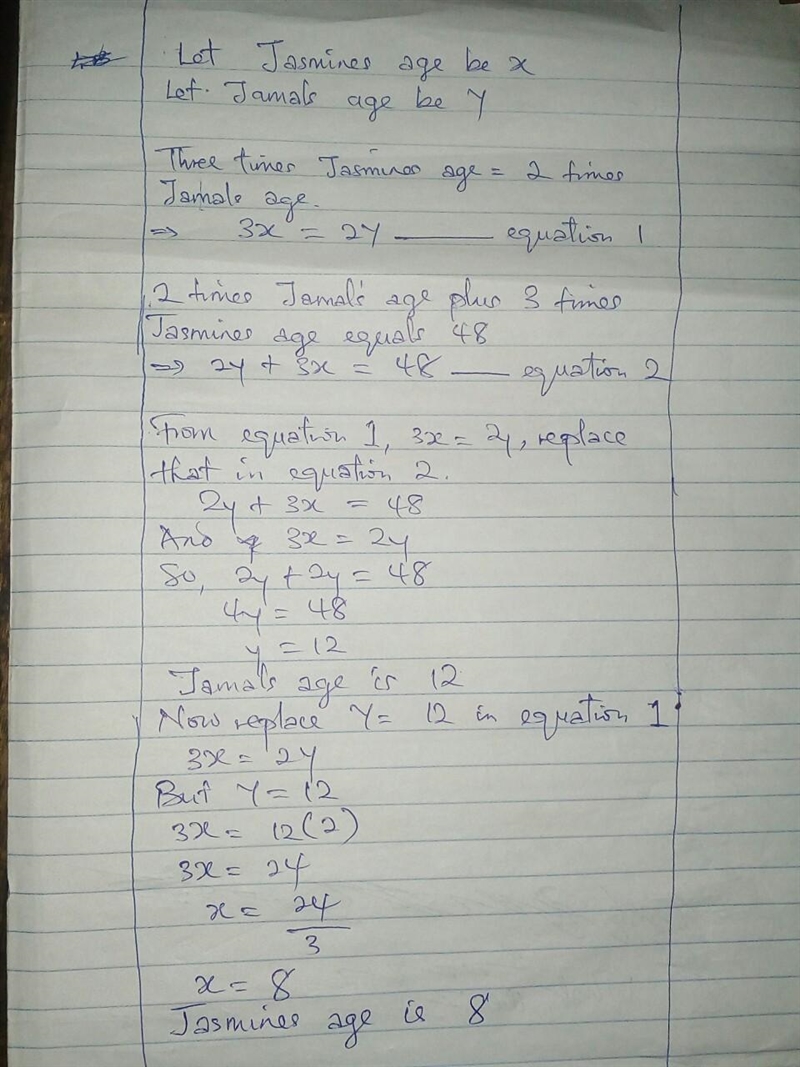 Let Jasmines age be x
Let Jamals age be Y
Three times Jasmines age = 2 times
Jamals age.
⇒ 3x = 2Y —— equation 1
2 times Jamal's age plus 3 times
Jasmines age equals 48
⇒ 2y + 3x = 48 —— equation 2
From equation 1, 3x = 2y, replace
that in equation 2.
2y + 3x = 48
And 3x = 2y
So, 2y + 2y = 48
4y = 48
y = 12
Jamals age is 12
Now replace Y = 12 in equation 1
3x = 2Y
But Y = 12
3x = 12(2)
3x = 24
x = 24
3
x = 8
Jasmines age is 8